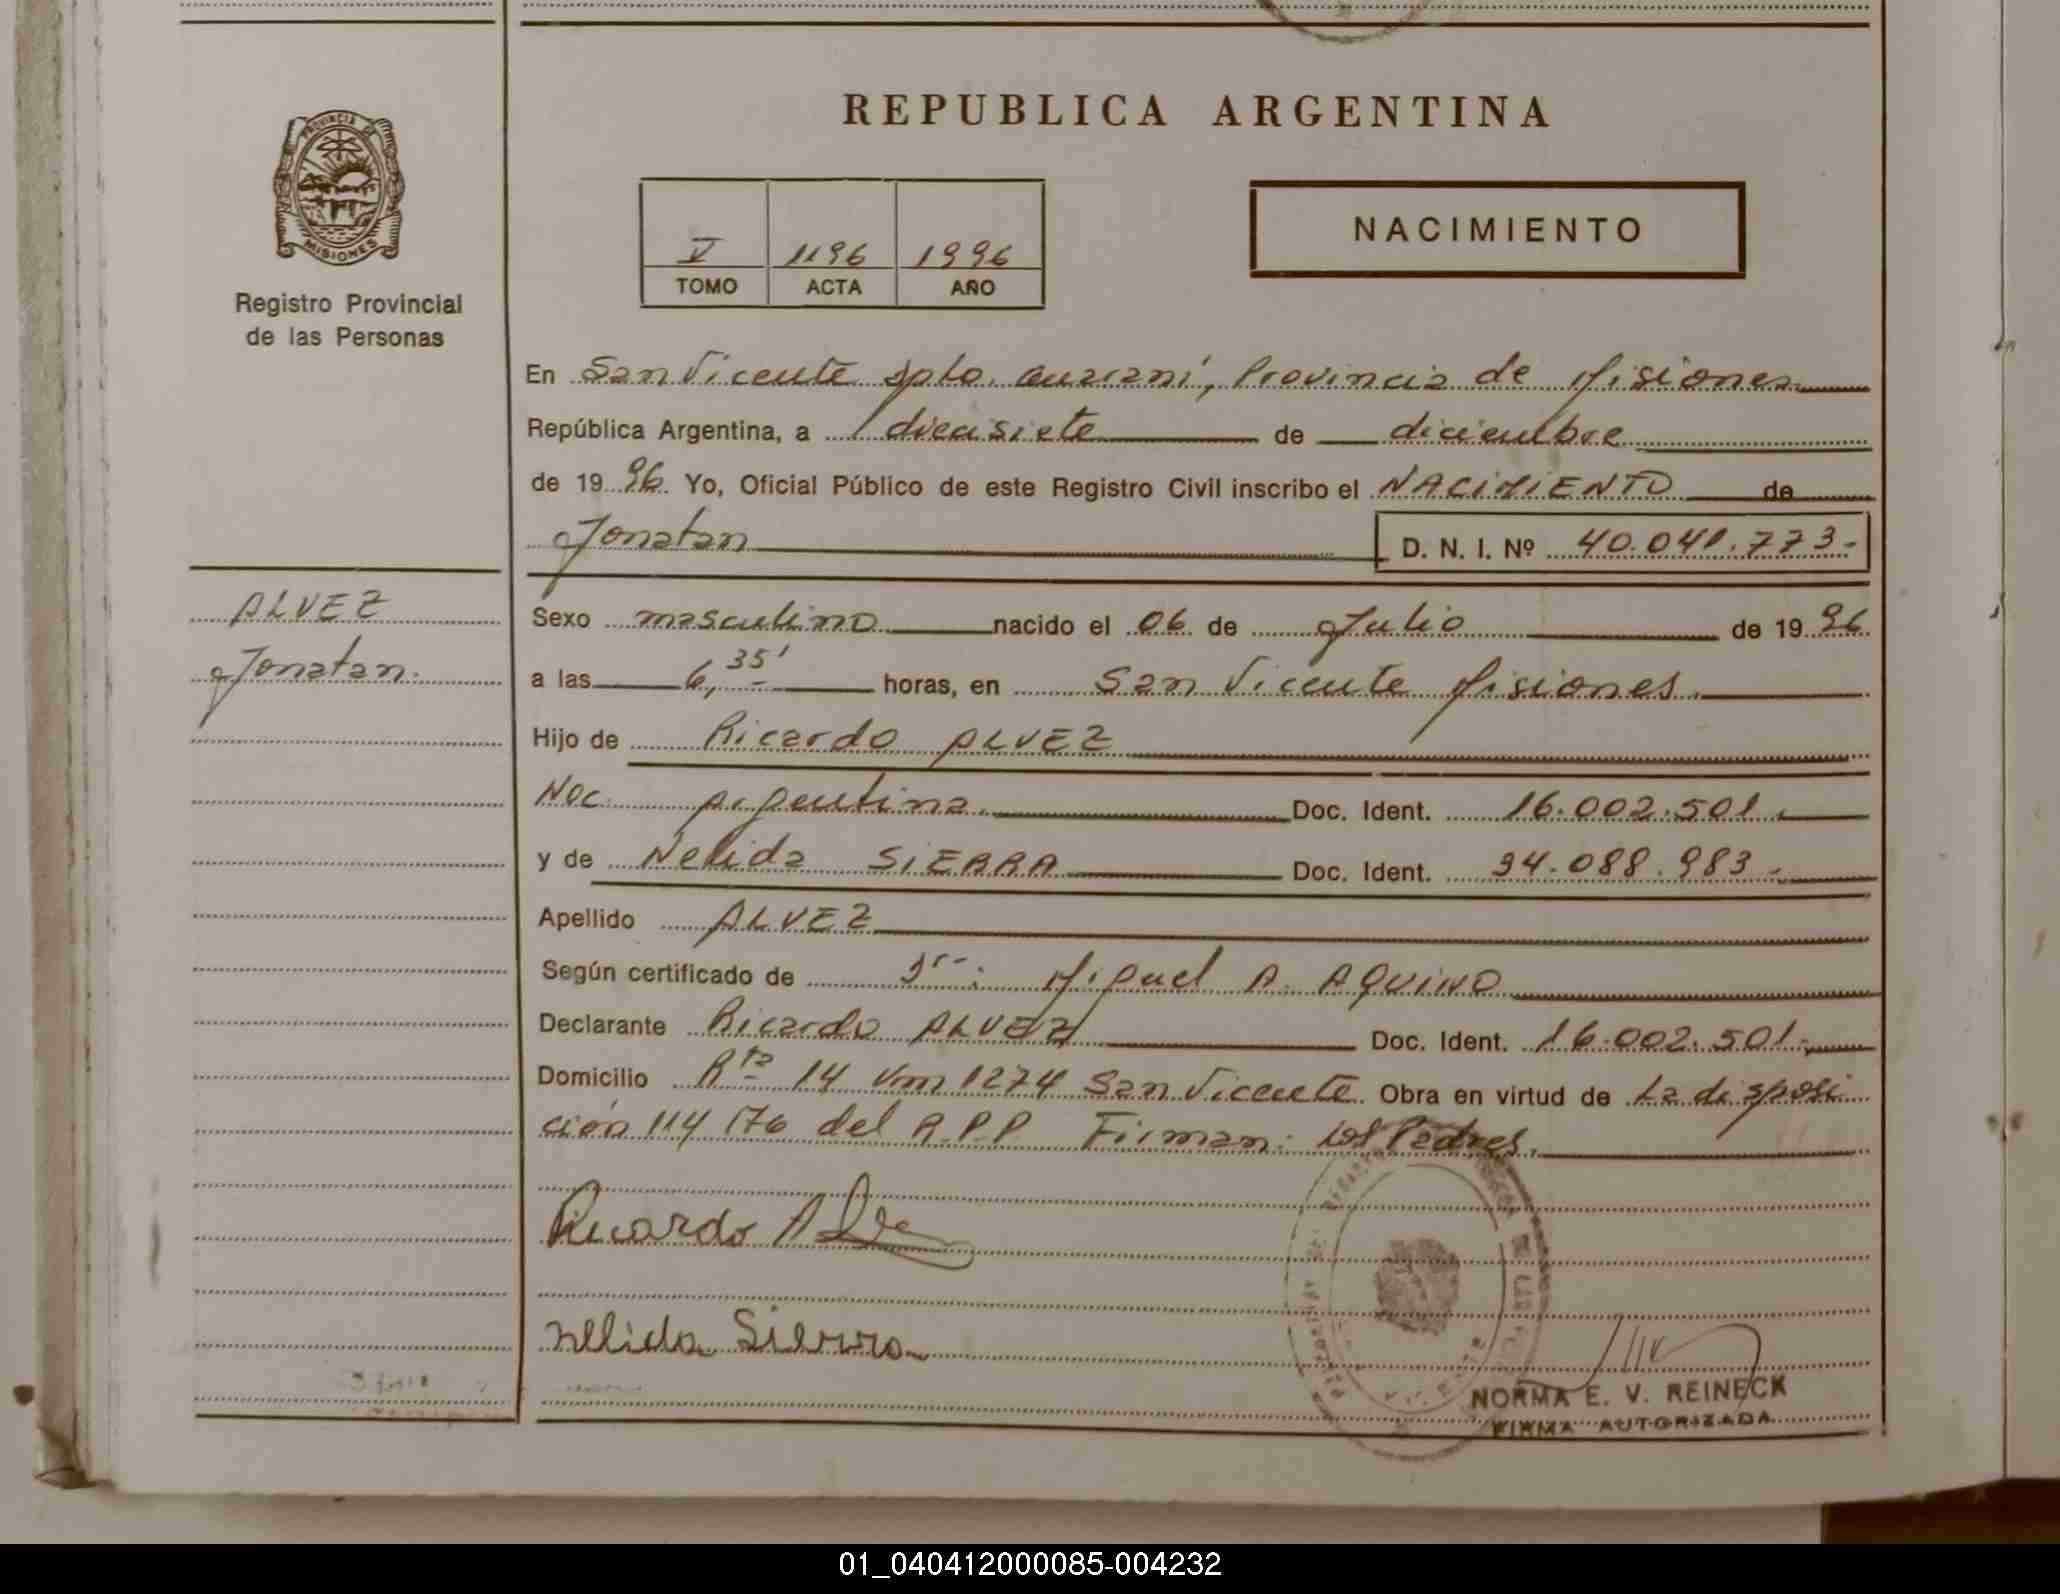 REPUBLICA ARGENTINA
PROVINCIA DE
MISIONES
Registro Provincial
de las Personas
V 1196 1996
TOMO ACTA AÑO
NACIMIENTO
En San Vicente Dpto. Guaraní, Provincia de Misiones
República Argentina, a diecisiete de diciembre
de 1996. Yo, Oficial Público de este Registro Civil inscribo el NACIMIENTO de
Jonatan D. N. I. Nº 40.041.773-
ALVEZ
Jonatan.
Sexo masculino nacido el 06 de Julio de 1996
a las 6,35' horas, en San Vicente Misiones.
Hijo de Ricardo ALVEZ
Nac. Argentina. Doc. Ident. 16.002.501.
y de Nelida SIERRA Doc. Ident. 34.088.983.
Apellido ALVEZ
Según certificado de Dr.: Miguel A. AQUINO
Declarante Ricardo ALVEZ Doc. Ident. 16.002.501.
Domicilio Rta 14 Km 1274 San Vicente. Obra en virtud de La disposi
ción 114/76 del R.P.P. Firman: los Padres.
Ricardo
Nelida Sierra
NORMA E. V. REINECK
FIRMA AUTORIZADA
01_040412000085-004232